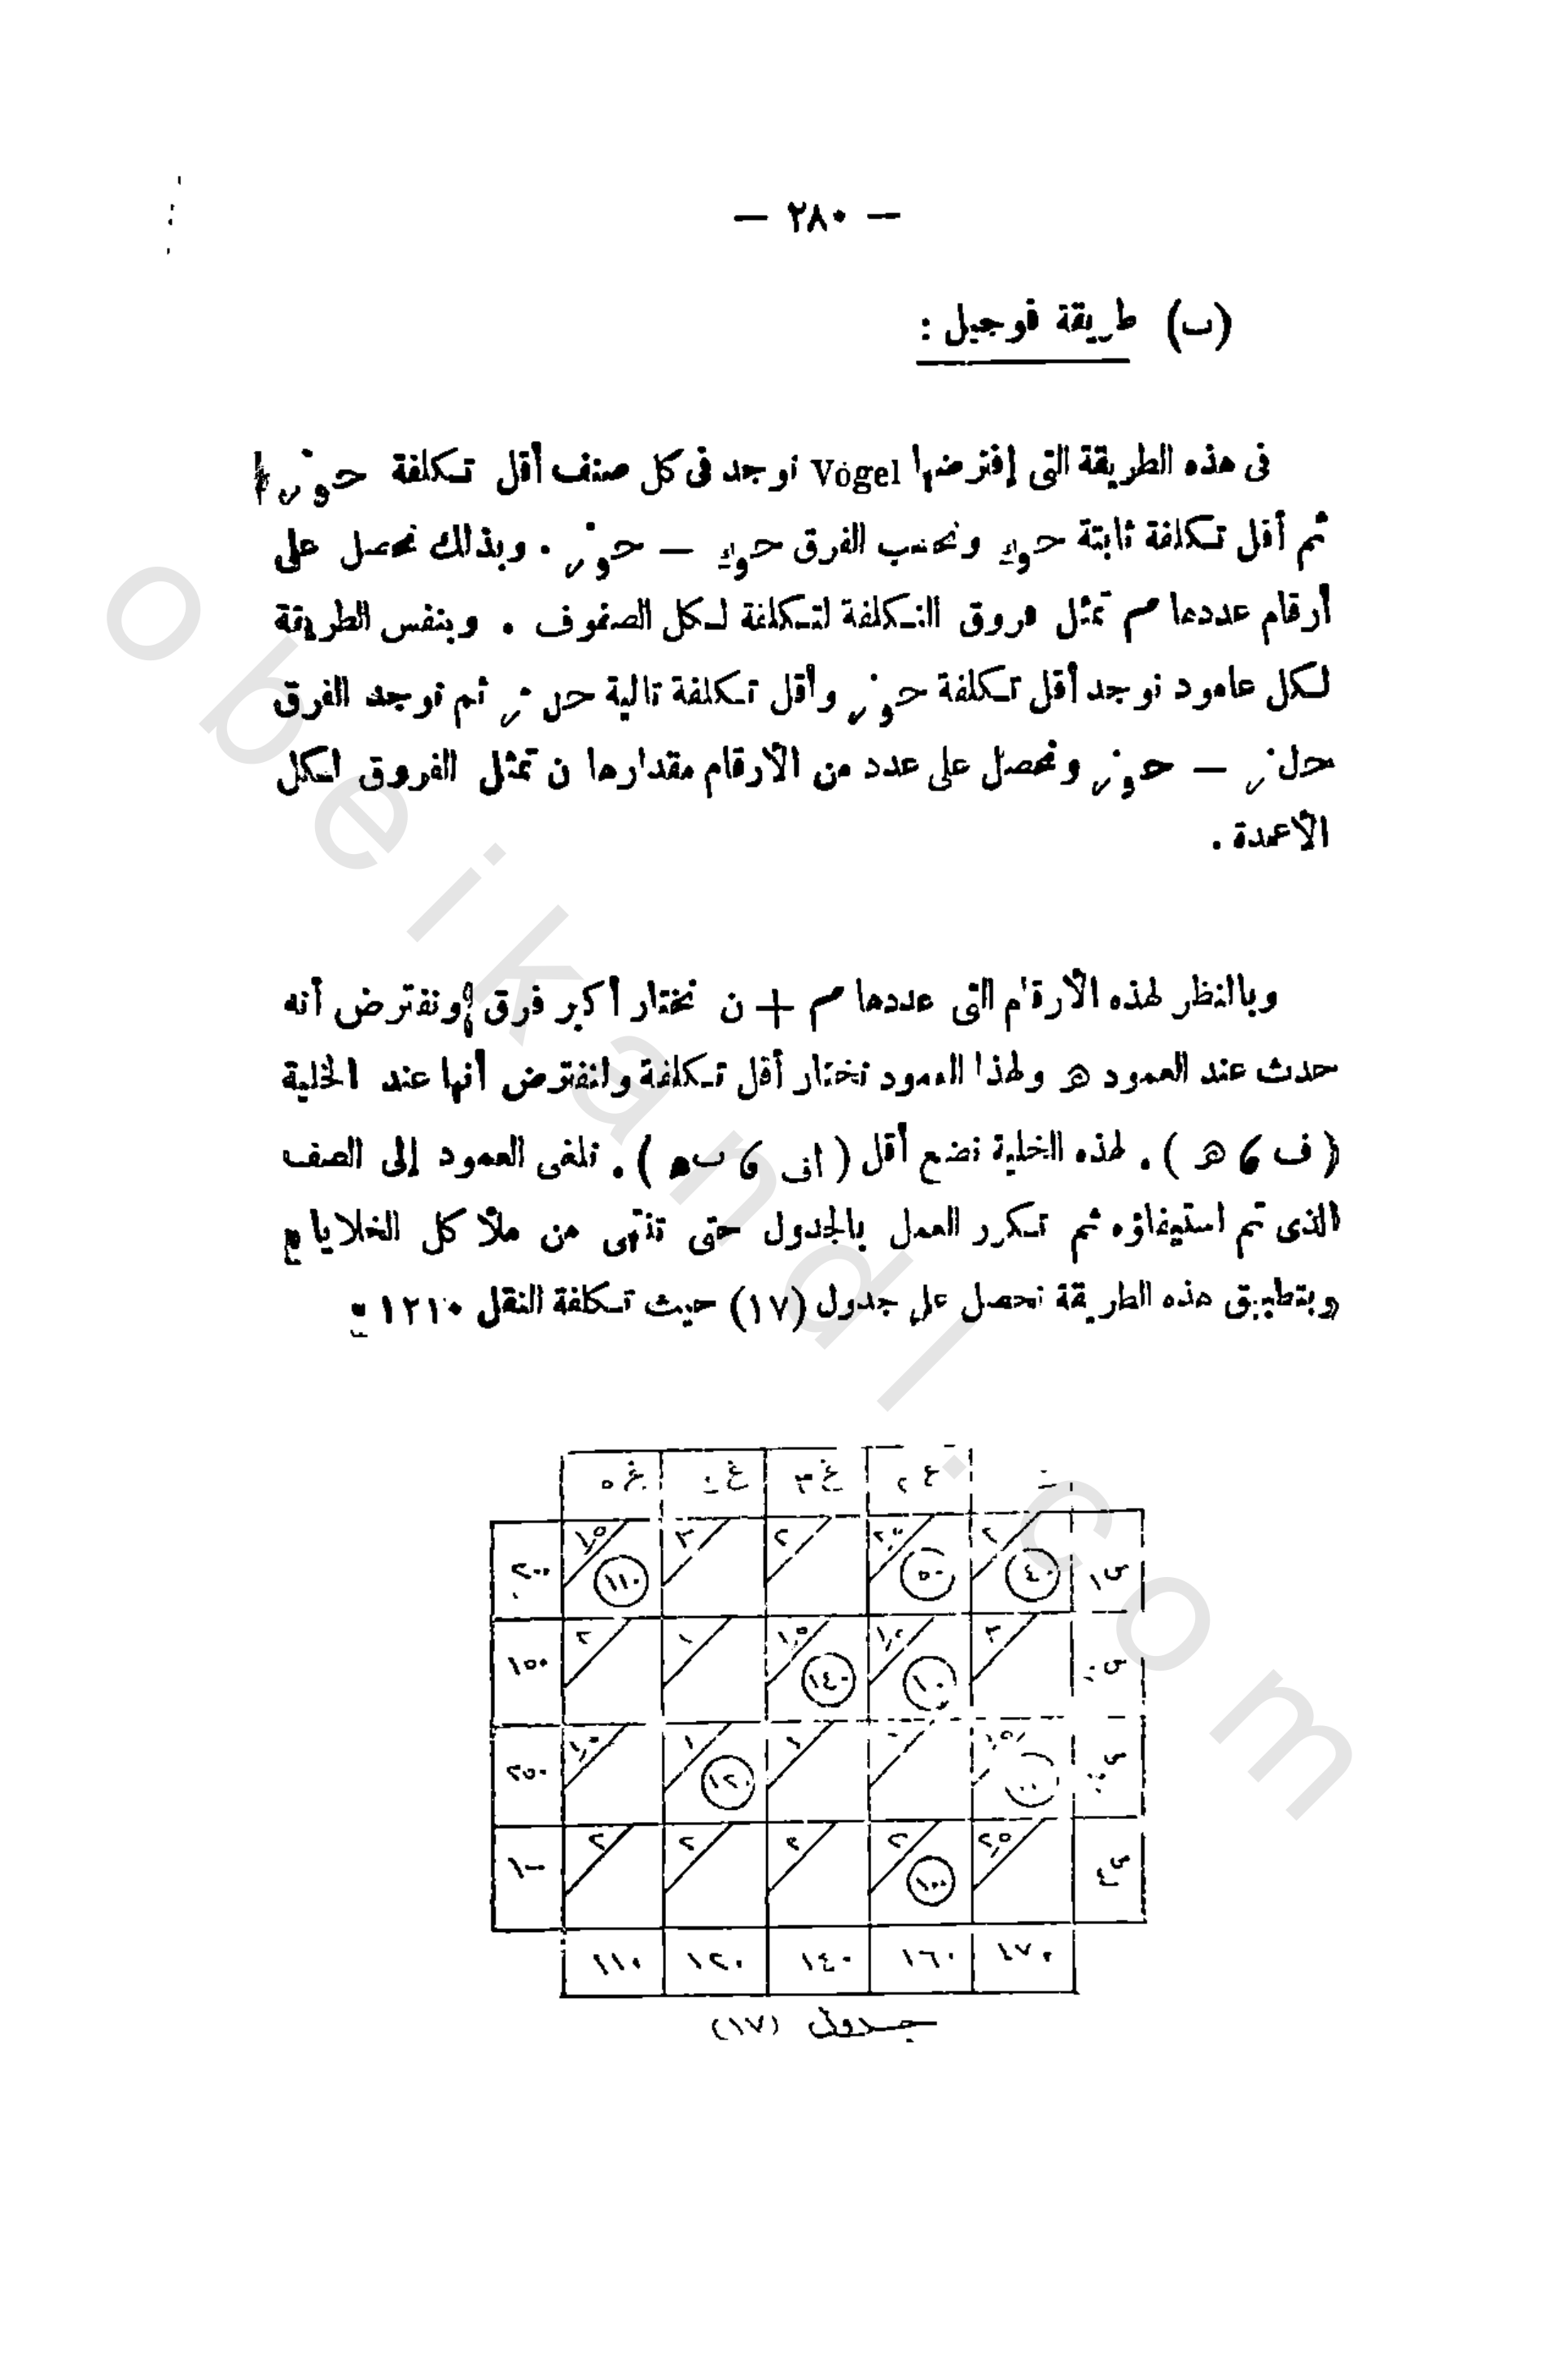 — ٢٨٠ —
(ب) طريقة فوجيل :
فى هذه الطريقة التى إفترضها Vogel نوجد فى كل صنف أقل تكلفة
ثم أقل تكلفة ثابتة ونحسب الفرق — . وبذلك نحصل على
أرقام عددها م تمثل فروق التكلفة لتكلفة لكل الصفوف . وبنفس الطريقة
لكل عامود نوجد أقل تكلفة وأقل تكلفة تالية ثم نوجد الفرق
— ونحصل على عدد من الأرقام مقدارها ن تمثل الفروق لكل
الأعمدة .
وبالنظر لهذه الأرقام التى عددها م + ن نختار أكبر فرق ونفترض أنه
حدث عند العمود ه ولهذا العمود نختار أقل تكلفة ولنفترض أنها عند الخلية
( ف ، ه ) . لهذه الخلية نضع أقل ( ، ) . نلغى العمود إلى الصف
الذى تم استيفاؤه ثم تكرر العمل بالجدول حتى تنتهى من ملأ كل الخلايا
وبتطبيق هذه الطريقة نحصل على جدول (١٧) حيث تكلفة النقل ١٢١٠
غ ٥ غ ٣ ٢
٢٠٠ ١,٥ ١١٠ ٣ ٢ ٥٠ ٢ ٤٠ س١
١٥٠ ٢ ١ ١,٥ ١٤٠ ١٠ ٣
٢٥٠ ١ ١٢٠ ١ ١,٥
١٠٠ ٢ ٢ ٢ ٢ ١٠٠ ٢,٥ س٤
١١٠ ١٢٠ ١٤٠ ١٦٠ ١٧٠
جدول (١٧)
obeikandl.com